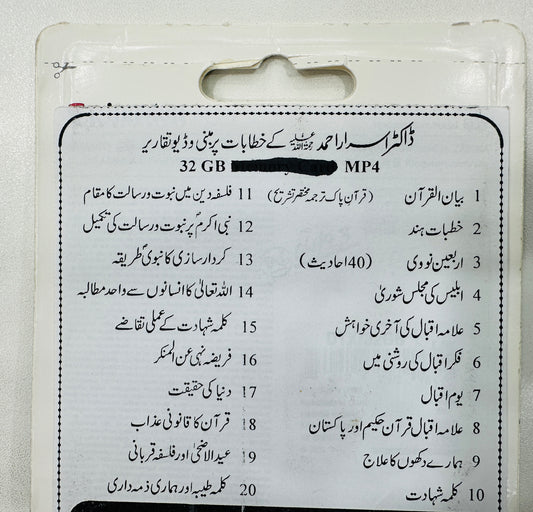 ڈاکٹر اسرار احمد رحمۃ اللہ علیہ کے خطابات پر مبنی وڈیو تقاریر
32 GB MP4
1 بیان القرآن (قرآن پاک ترجمہ مختصر تشریح)
2 خطبات ہند
3 اربعین نووی (40 احادیث)
4 ابلیس کی مجلس شوریٰ
5 علامہ اقبال کی آخری خواہش
6 فکر اقبال کی روشنی میں
7 یوم اقبال
8 علامہ اقبال قرآن حکیم اور پاکستان
9 ہمارے دکھوں کا علاج
10 کلمہ شہادت
11 فلسفہ دین میں نبوت و رسالت کا مقام
12 نبی اکرمؐ پر نبوت و رسالت کی تکمیل
13 کردار سازی کا نبویؐ طریقہ
14 اللہ تعالیٰ کا انسانوں سے واحد مطالبہ
15 کلمہ شہادت کے عملی تقاضے
16 فریضہ نہی عن المنکر
17 دنیا کی حقیقت
18 قرآن کا قانونی عذاب
19 عید الاضحیٰ اور فلسفہ قربانی
20 کلمہ طیبہ اور ہماری ذمہ داری